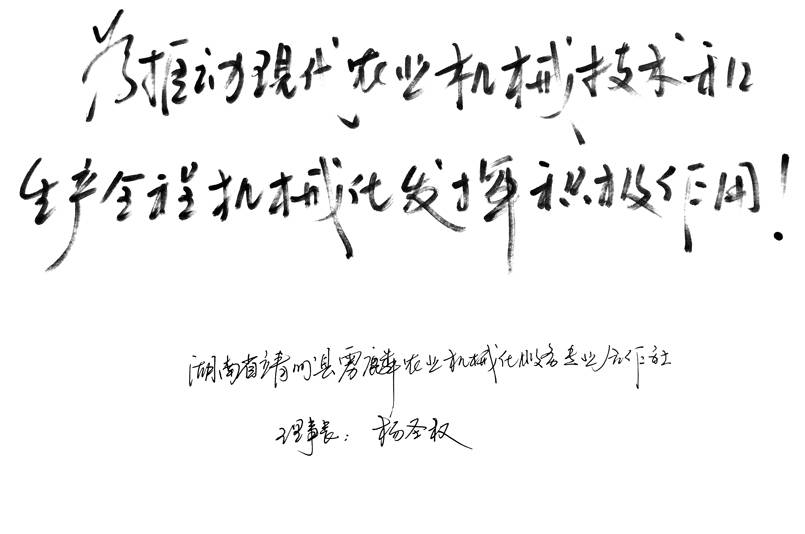 为推动现代农业机械技术和
生产全程机械化发挥积极作用！
湖南省靖州县雳麟农业机械化服务专业合作社
理事长：杨圣权